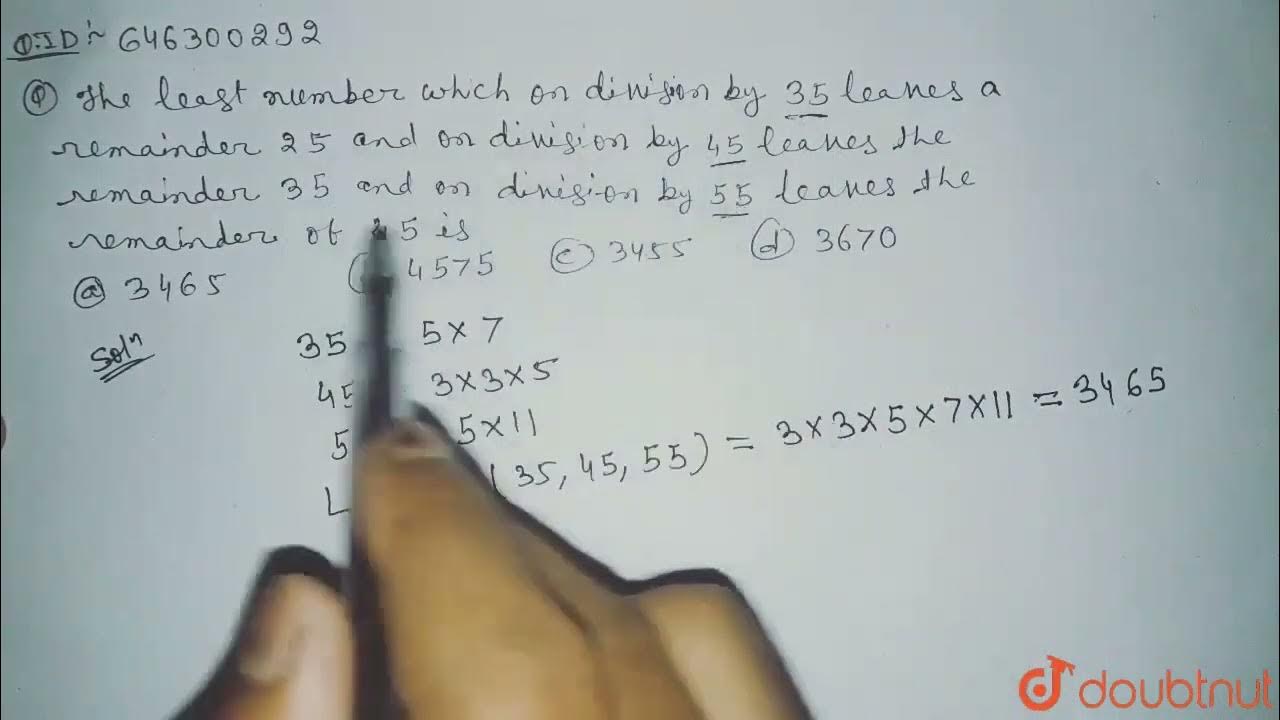 Q.ID:~ 646300292
Q The least number which on division by 35 leaves a
remainder 25 and on division by 45 leaves the
remainder 35 and on division by 55 leaves the
remainder of 45 is
a 3465 4575 c 3455 d 3670
Solⁿ
35 5×7
45 3×3×5
5 5×11
L (35, 45, 55) = 3×3×5×7×11 = 3465
doubtnut